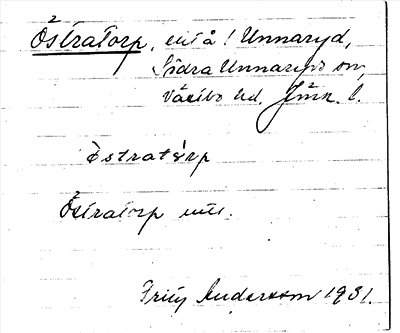 2
Östratorp, vid å i Unnaryd,
Södra Unnaryds sn,
Västbo hd, Jönk. l.
Östratorp
Östratorp
Fritz Andersson 1931.